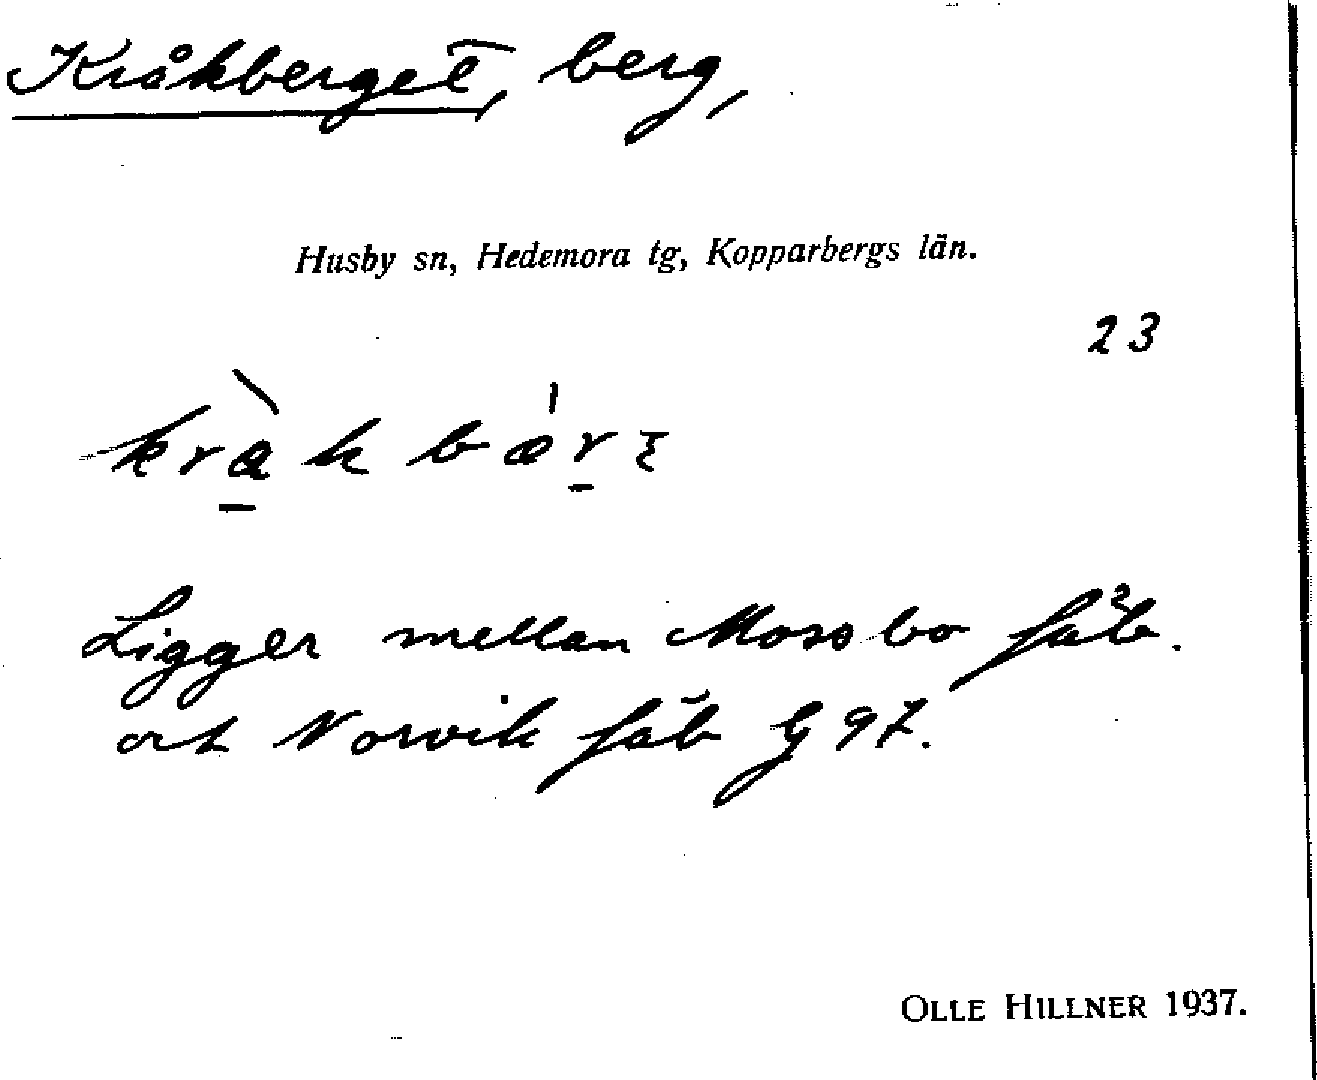 Kråkberget, berg,
Husby sn, Hedemora tg, Kopparbergs län.
23
Ligger mellan Mossbo fäb.
och Norvik fäb G 97.
OLLE HILLNER 1937.